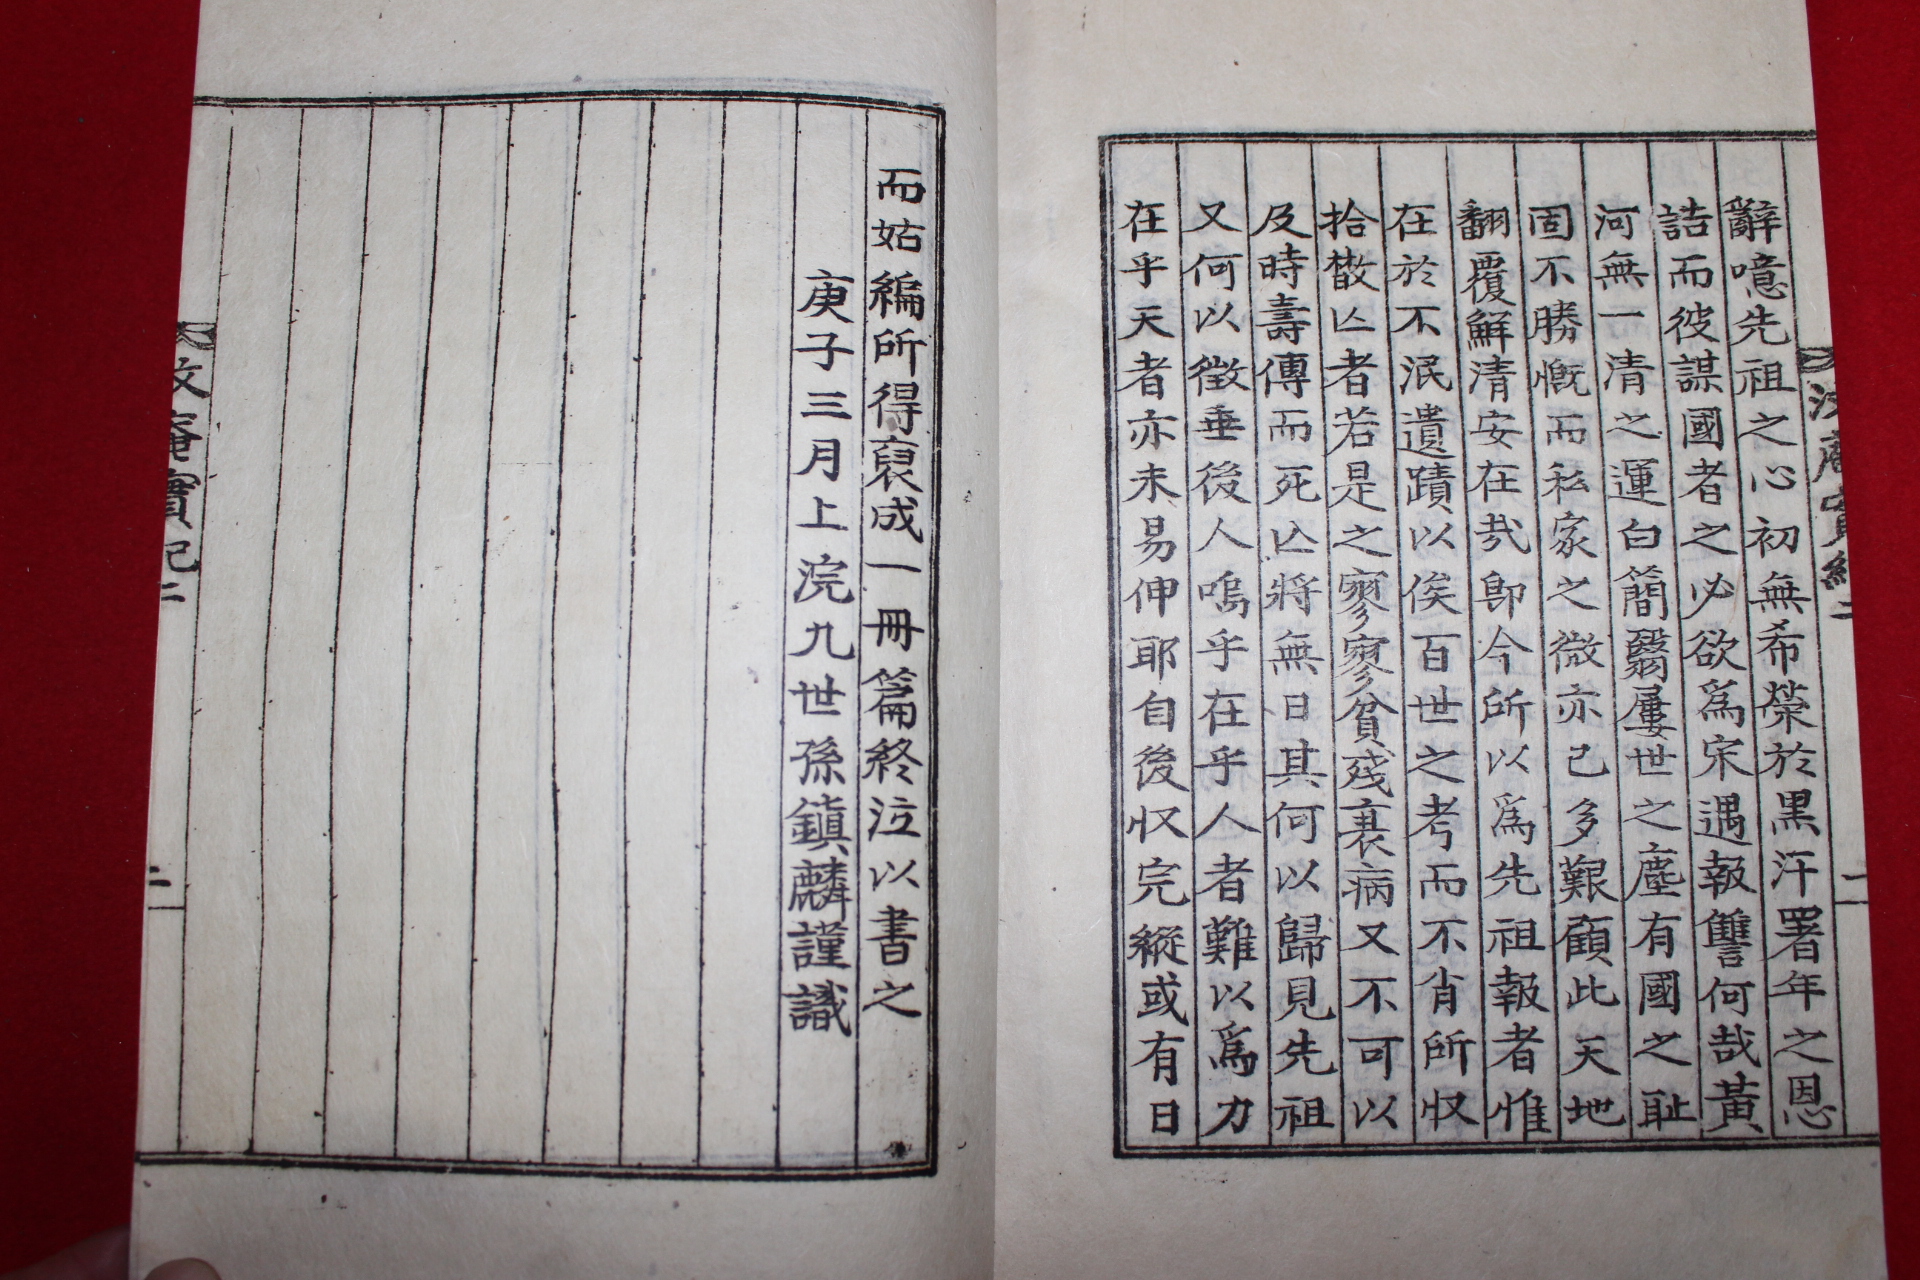 辭噫先祖之心初無希榮於黑汗署年之恩
詰而彼謀國者之必欲爲宋遇報讐何哉黃
河無一清之運白簡翳屢世之塵有國之恥
固不勝慨而私家之微亦已多艱顧此天地
翻覆鮮清安在㢤卽今所以爲先祖報者惟
在於不泯遺蹟以俟百世之考而不肖所収
拾散亾者若是之寥寥貧殘衰病又不可以
及時壽傳而死亾將無日其何以歸見先祖
又何以徴垂後人嗚乎在乎人者難以爲力
在乎天者亦未易伸耶自後収完縱或有日
而姑編所得裒成一冊篇終泣以書之
庚子三月上浣九世孫鎭麟謹識
庵實紀二
二